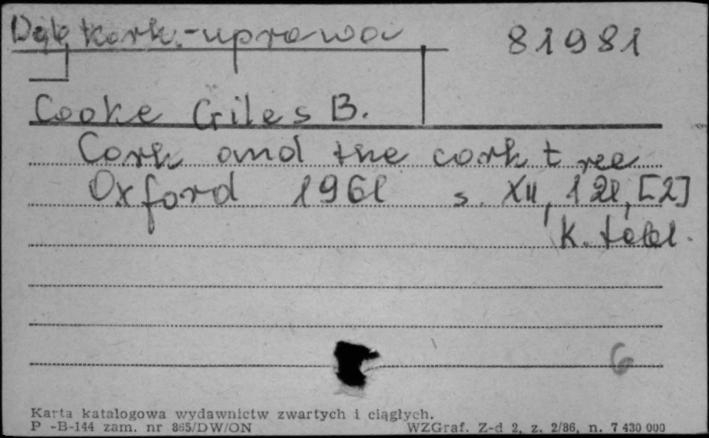 Dąb kork.-uprawa 81981
Cooke Giles B.
Cork and the cork tree
Oxford 1961 s. XII, 121, [2]
K. tabl.
6
Karta katalogowa wydawnictw zwartych i ciągłych.
P -B-144 zam. nr 865/DW/ON WZGraf. Z-d 2, z. 2/86, n. 7 430 000